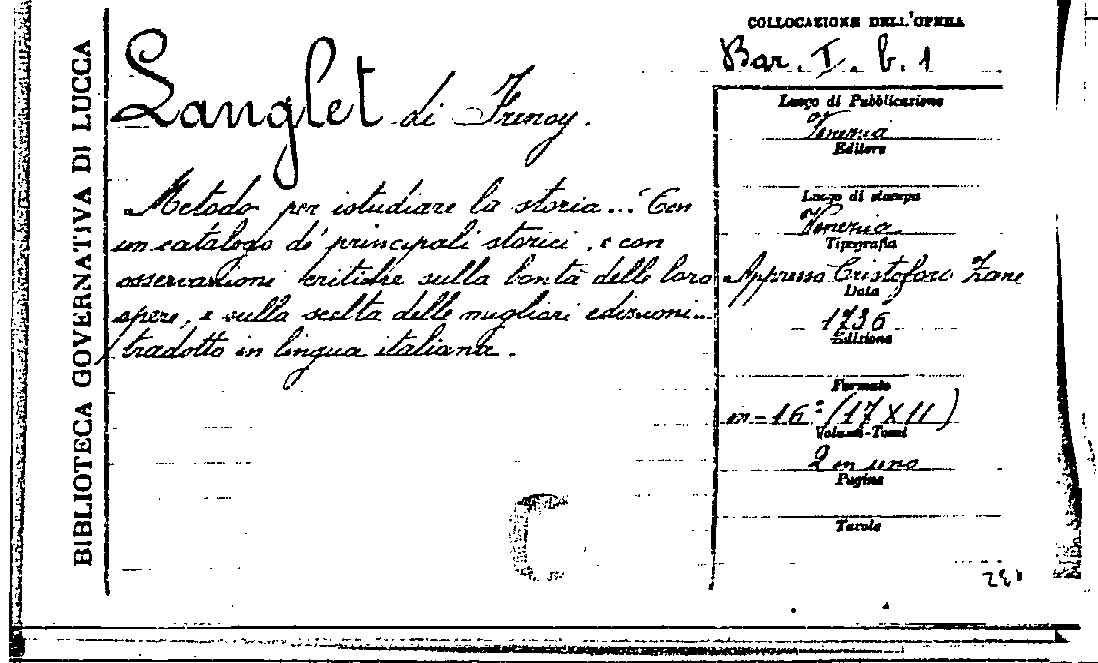 BIBLIOTECA GOVERNATIVA DI LUCCA
Langlet di Frenoy.
Metodo per istudiare la storia... Con
un catalogo de' principali storici, e con
osservazioni critiche sulla bontà delle loro
opere, e sulla scelta delle migliori edizioni...
tradotto in lingua italiana.
COLLOCAZIONE DELL'OPERA
Bar. I. b. 1
Luogo di Pubblicazione
Venezia
Editore
Luogo di stampa
Venezia
Tipografia
Appresso Cristoforo Zane
Data
1736
Edizione
Formato
in-16° (17 X 11)
Volumi-Tomi
2 in uno
Pagine
Tavole
C